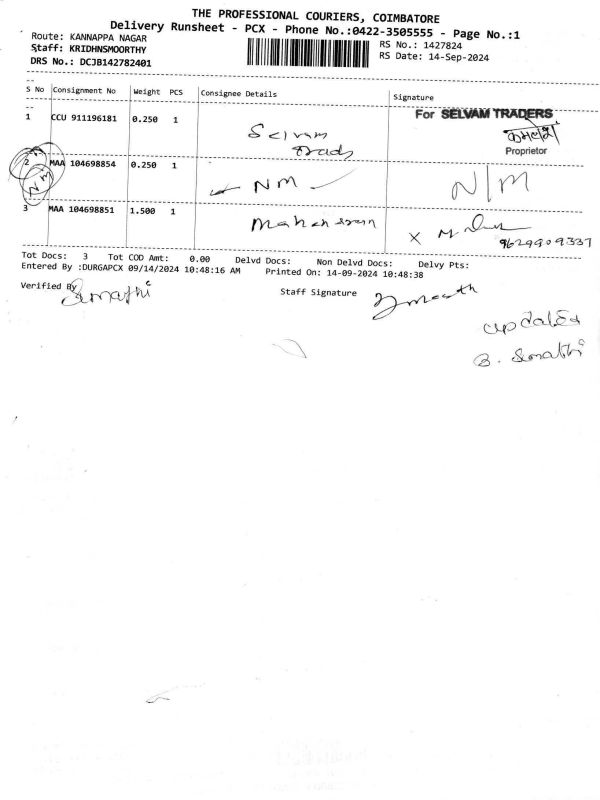 THE PROFESSIONAL COURIERS, COIMBATORE
Delivery Runsheet - PCX - Phone No.:0422-3505555 - Page No.:1
Route: KANNAPPA NAGAR
RS No.: 1427824
Staff: KRIDHNSMOORTHY
RS Date: 14-Sep-2024
DRS No.: DCJB142782401
S No Consignment No Weight PCS Consignee Details Signature
1 CCU 911196181 0.250 1 Selvam For SELVAM TRADERS
Proprietor
2 MAA 104698854 0.250 1 NM N/M
NM
3 MAA 104698851 1.500 1 X
9629909337
Tot Docs: 3 Tot COD Amt: 0.00 Delvd Docs: Non Delvd Docs: Delvy Pts:
Entered By :DURGAPCX 09/14/2024 10:48:16 AM Printed On: 14-09-2024 10:48:38
Verified By Staff Signature